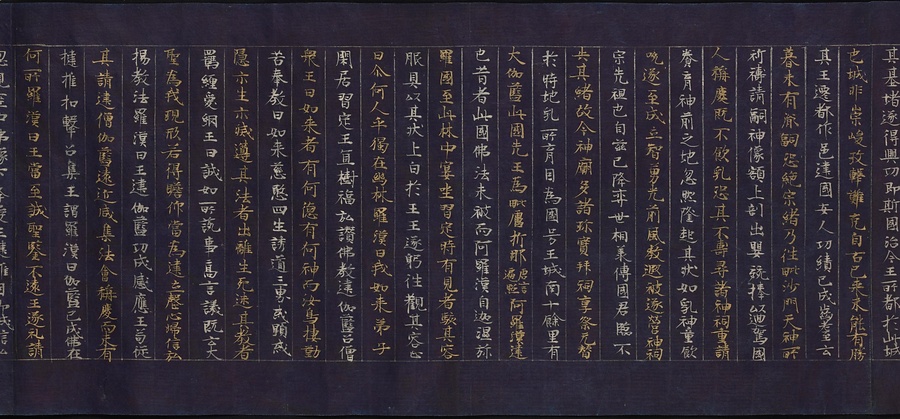 其基堵遂得興功即斯國治今王所都於此城
也城非崇峻攻擊難克自古已來未能有勝
其王遷都作邑建國安人功績已成齒耋云
暮未有胤嗣恐絕宗緒乃往毗沙門天神所
祈禱請嗣神像額上剖出嬰孩捧以迴駕國
人稱慶既不飲乳恐其不壽尋詣神祠重請
養育神前之地忽然隆起其狀如乳神童飲
吮遂至成立智勇光前風教遐被遂營神祠
宗先祖也自茲已降弈世相承傳國君臨不
失其緒故今神廟多諸珍寶拜祠享祭无替
於時地乳所育因為國号王城南十餘里有
大伽藍此國先王為毗盧折那唐言遍照阿羅漢建
也昔者此國佛法未被而阿羅漢自迦濕弥
羅國至此林中宴坐習定時有見者駭其容
服具以其狀上白於王王遂躬往觀其容止
曰尒何人乎獨在幽林羅漢曰我如來弟子
閑居習定王宜樹福弘讚佛教建伽藍召僧
衆王曰如來者有何德有何神而汝鳥棲勤
苦奉教曰如來慈愍四生誘導三界或顯或
隱示生示滅遵其法者出離生死迷其教者
羈纏愛網王曰誠如所說事高言議既云大
聖為我現形若得瞻仰當為建立罄心歸信弘
揚教法羅漢曰王建伽藍功成感應王苟從
其請建僧伽藍遠近咸集法會稱慶而未有
揵推扣擊召集王謂羅漢曰伽藍已成佛在
何所羅漢曰王當至誠聖鑒不遠王遂礼請
忽見空中佛像下降授王揵椎因即誠信